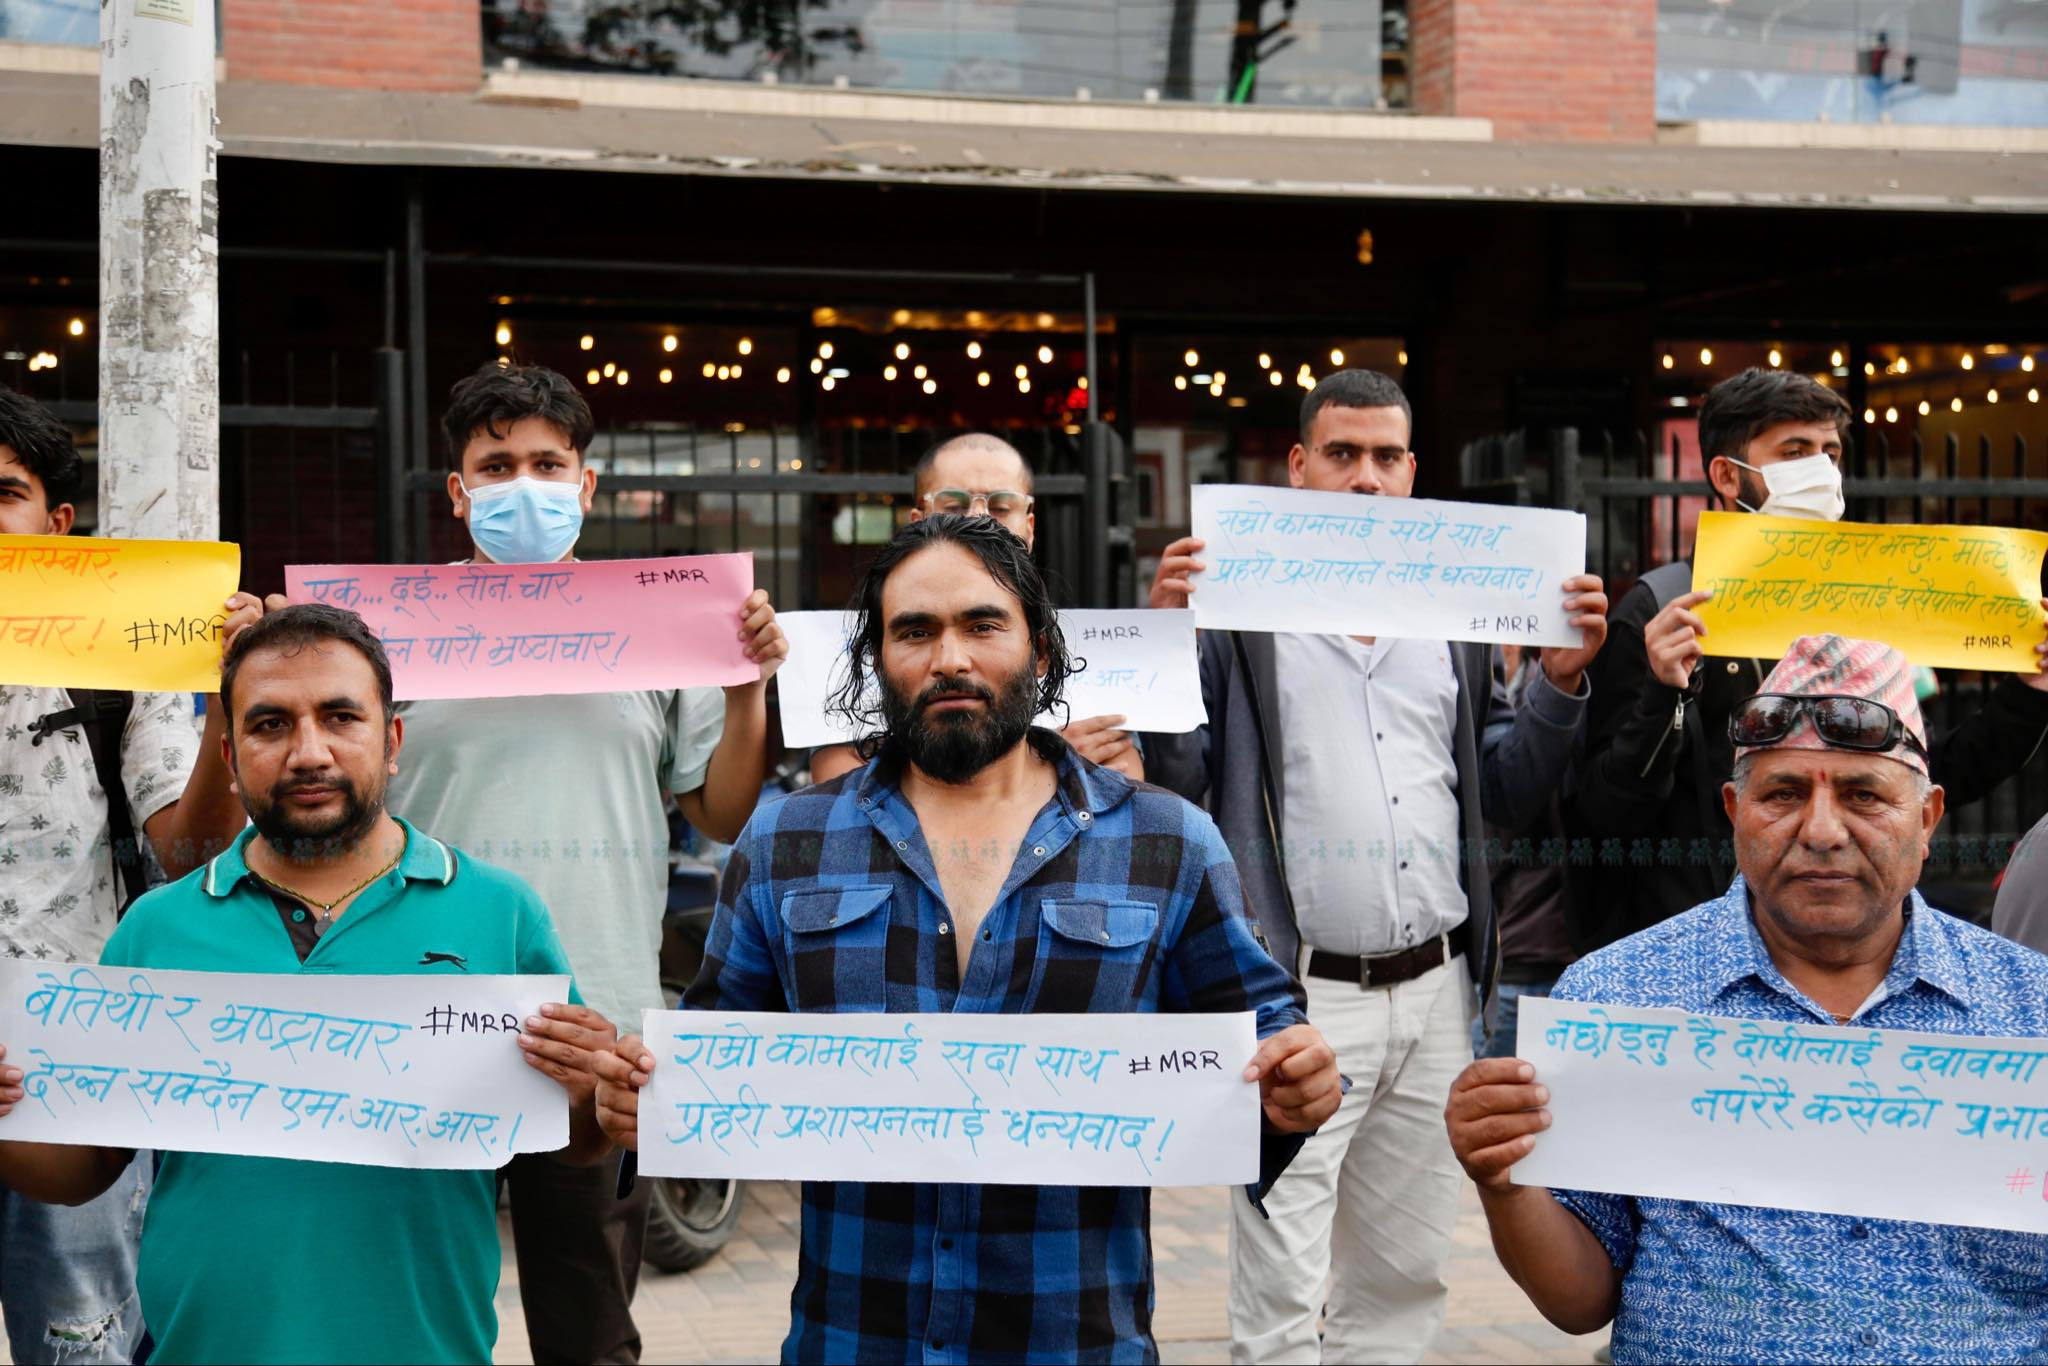 बारम्बार,
चार! #MRR
एक... दूई.. तीन. चार, #MRR
पारौ भ्रष्टाचार!
#MRR
आर.!
राम्रो कामलाई सधैं साथ
प्रहरी प्रशासन लाई धन्यवाद!
#MRR
एउटा कुरा भन्छु. मान्छौ??
भए भरका भ्रष्टलाई यसैपाली तान्छु
#MRR
बेतिथी र भ्रष्ट्राचार, #MRR
देख्न सक्दैन एम.आर.आर.!
राम्रो कामलाई सदा साथ #MRR
प्रहरी प्रशासनलाई धन्यवाद!
नछोड्नु है दोषीलाई दवावमा
नपरेरै कसैको
#